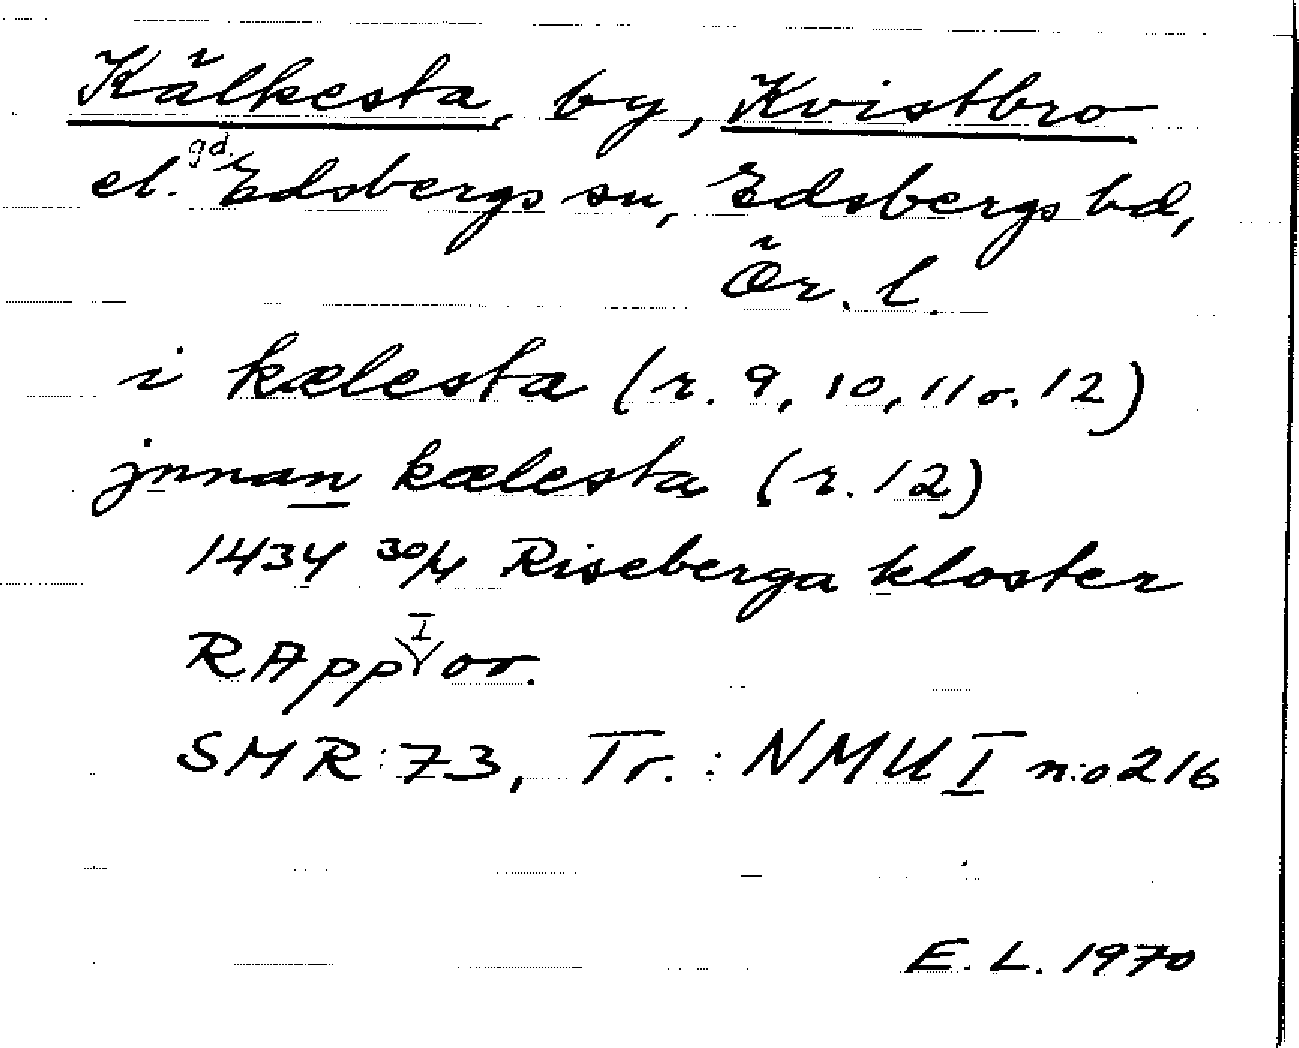 Kälkesta, by, Kvistbro
el. gd. Edsbergs sn, Edsbergs hd,
Ör. l.
i kælesta (r. 9, 10, 11 o. 12)
jnnan kælesta (r. 12)
1434 30/4 Riseberga kloster
RApp I or.
SMR: 73, Tr.: NMU I n:o 216
E. L. 1970